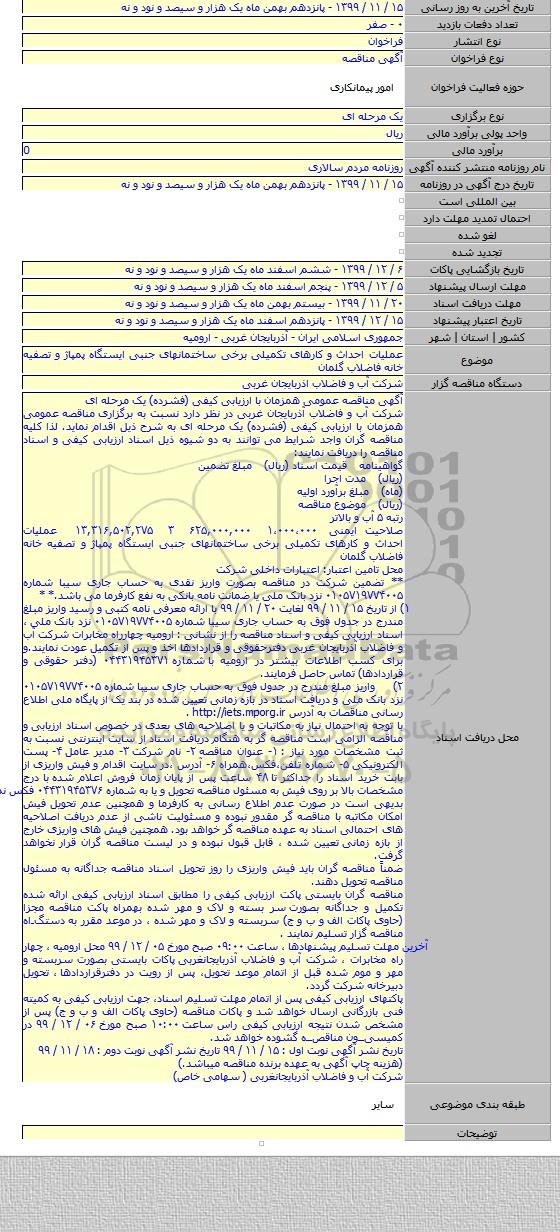 تاریخ آخرین به روز رسانی ۱۵ / ۱۱ / ۱۳۹۹ - پانزدهم بهمن ماه یک هزار و سیصد و نود و نه
تعداد دفعات بازدید ۰ - صفر
نوع انتشار فراخوان
نوع فراخوان آگهی مناقصه
حوزه فعالیت فراخوان امور پیمانکاری
نوع برگزاری یک مرحله ای
واحد پولی برآورد مالی ریال
برآورد مالی 0
نام روزنامه منتشر کننده آگهی روزنامه مردم سالاری
تاریخ درج آگهی در روزنامه ۱۵ / ۱۱ / ۱۳۹۹ - پانزدهم بهمن ماه یک هزار و سیصد و نود و نه
بین المللی است
احتمال تمدید مهلت دارد
لغو شده
تجدید شده
تاریخ بازگشایی پاکات ۶ / ۱۲ / ۱۳۹۹ - ششم اسفند ماه یک هزار و سیصد و نود و نه
مهلت ارسال پیشنهاد ۵ / ۱۲ / ۱۳۹۹ - پنجم اسفند ماه یک هزار و سیصد و نود و نه
مهلت دریافت اسناد ۲۰ / ۱۱ / ۱۳۹۹ - بیستم بهمن ماه یک هزار و سیصد و نود و نه
تاریخ اعتبار پیشنهاد ۱۵ / ۱۲ / ۱۳۹۹ - پانزدهم اسفند ماه یک هزار و سیصد و نود و نه
کشور | استان | شهر جمهوری اسلامی ایران - آذربایجان غربی - ارومیه
موضوع عملیات احداث و کارهای تکمیلی برخی ساختمانهای جنبی ایستگاه پمپاژ و تصفیه
خانه فاضلاب گلمان
دستگاه مناقصه گزار شرکت آب و فاضلاب آذربایجان غربی
محل دریافت اسناد
آگهی مناقصه عمومی همزمان با ارزیابی کیفی (فشرده) یک مرحله ای
شرکت آب و فاضلاب آذربایجان غربی در نظر دارد نسبت به برگزاری مناقصه عمومی
همزمان با ارزیابی کیفی (فشرده) یک مرحله ای به شرح ذیل اقدام نماید. لذا کلیه
مناقصه گران واجد شرایط می توانند به دو شیوه ذیل اسناد ارزیابی کیفی و اسناد
مناقصه را دریافت نمایند:
گواهینامه قیمت اسناد (ریال) مبلغ تضمین
(ریال) مدت اجرا
(ماه) مبلغ برآورد اولیه
(ریال) موضوع مناقصه
رتبه ۵ آب و بالاتر
صلاحیت ایمنی ۱،۰۰۰،۰۰۰ ۶۲۵,۰۰۰,۰۰۰ ۳ ۱۳,۳۱۶,۵۰۲,۲۷۵ عملیات
احداث و کارهای تکمیلی برخی ساختمانهای جنبی ایستگاه پمپاژ و تصفیه خانه
فاضلاب گلمان
محل تامین اعتبار: اعتبارات داخلی شرکت
** تضمین شرکت در مناقصه بصورت واریز نقدی به حساب جاری سیبا شماره
۰۱۰۵۷۱۹۷۷۴۰۰۵ نزد بانک ملی یا ضمانت نامه بانکی به نفع کارفرما می باشد.* *
۱) از تاریخ ۱۵ / ۱۱ / ۹۹ لغایت ۲۰ / ۱۱ / ۹۹ با ارائه معرفی نامه کتبی و رسید واریز مبلغ
مندرج در جدول فوق به حساب جاری سیبا شماره ۰۱۰۵۷۱۹۷۷۴۰۰۵ نزد بانک ملی ،
اسناد ارزیابی کیفی و اسناد مناقصه را از نشانی : ارومیه چهارراه مخابرات شرکت آب
و فاضلاب آذربایجان غربی دفترحقوقی و قراردادها اخذ و پس از تکمیل عودت نمایند.و
برای کسب اطلاعات بیشتر در ارومیه با شماره ۰۴۴۳۱۹۴۵۳۷۱ (دفتر حقوقی و
قراردادها) تماس حاصل فرمایند.
۲) واریز مبلغ مندرج در جدول فوق به حساب جاری سیبا شماره ۰۱۰۵۷۱۹۷۷۴۰۰۵
نزد بانک ملی و دریافت اسناد در بازه زمانی تعیین شده در بند یک از پایگاه ملی اطلاع
رسانی مناقصات به آدرس http://iets.mporg.ir .
با توجه به احتمال نیاز به مکاتبات و یا اصلاحیه های بعدی در خصوص اسناد ارزیابی و
مناقصه الزامی است مناقصه گر به هنگام دریافت اسناد از سایت اینترنتی نسبت به
ثبت مشخصات مورد نیاز : ۱- عنوان مناقصه ۲- نام شرکت ۳- مدیر عامل ۴- پست
الکترونیکی ۵- شماره تلفن،فکس،همراه ۶- آدرس ،درسایت اقدام و فیش واریزی از
بابت خرید اسناد را، حداکثر تا ۴۸ ساعت پس از پایان زمان فروش اعلام شده با درج
مشخصات بالا بر روی فیش به مسئول مناقصه تحویل و یا به شماره ۰۴۴۳۱۹۴۵۳۷۶ فکس
بدیهی است در صورت عدم اطلاع رسانی به کارفرما و همچنین عدم تحویل فیش
امکان مکاتبه با مناقصه گر مقدور نبوده و مسئولیت ناشی از عدم دریافت اصلاحیه
های احتمالی اسناد به عهده مناقصه گر خواهد بود. همچنین فیش های واریزی خارج
از بازه زمانی تعیین شده ، قابل قبول نبوده و در لیست مناقصه گران قرار نخواهد
گرفت.
ضمناً مناقصه گران باید فیش واریزی را روز تحویل اسناد مناقصه جداگانه به مسئول
مناقصه تحویل دهند.
مناقصه گران بایستی پاکت ارزیابی کیفی را مطابق اسناد ارزیابی کیفی ارائه شده
تکمیل و جداگانه بصورت سر بسته و لاک و مهر شده بهمراه پاکت مناقصه مجزا
(حاوی پاکات الف و ب و ج) سربسته و لاک و مهر شده ، در موعد مقرر به دستگاه
مناقصه گزار تسلیم نمایند .
آخرین مهلت تسلیم پیشنهادها ، ساعت ۰۹:۰۰ صبح مورخ ۰۵ / ۱۲ / ۹۹ محل ارومیه ، چهار
راه مخابرات ، شرکت آب و فاضلاب آذربایجانغربی پاکات بایستی بصورت سربسته و
مهر و موم شده قبل از اتمام موعد تحویل، پس از رویت در دفترقراردادها ، تحویل
دبیرخانه شرکت گردد.
پاکتهای ارزیابی کیفی پس از اتمام مهلت تسلیم اسناد، جهت ارزیابی کیفی به کمیته
فنی بازرگانی ارسال خواهد شد و پاکات مناقصه (حاوی پاکات الف و ب و ج) پس از
مشخص شدن نتیجه ارزیابی کیفی راس ساعت ۱۰:۰۰ صبح مورخ ۰۶ / ۱۲ / ۹۹ در
کمیسیون مناقصه گشوده خواهد شد.
تاریخ نشر آگهی نوبت اول : ۱۵ / ۱۱ / ۹۹ تاریخ نشر آگهی نوبت دوم : ۱۸ / ۱۱ / ۹۹
(هزینه چاپ آگهی به عهده برنده مناقصه میباشد.)
شرکت آب و فاضلاب آذربایجانغربی ( سهامی خاص)
طبقه بندی موضوعی سایر
توضیحات